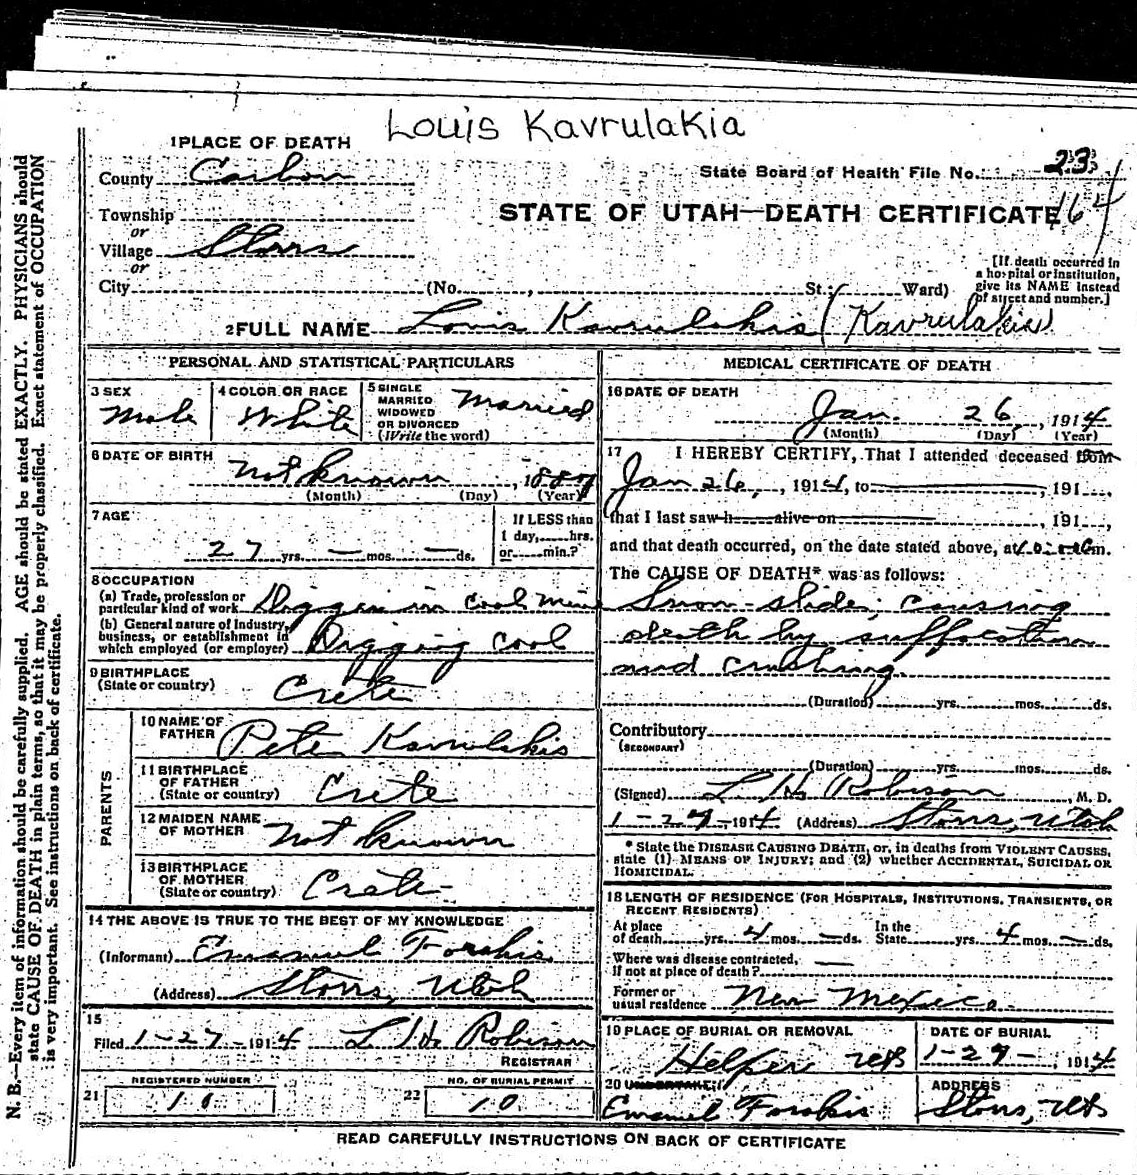 Louis Kavrulakia
1 PLACE OF DEATH
County Carbon
State Board of Health File No. 23
Township
STATE OF UTAH—DEATH CERTIFICATE 164
or
Village Storrs
or
[If death occurred in
a hospital or institution,
give its NAME instead
of street and number.]
City (No. , St.; Ward)
2 FULL NAME Louis Kavrulakis (Kavrulakis)
PERSONAL AND STATISTICAL PARTICULARS
3 SEX
Male
4 COLOR OR RACE
White
5 SINGLE
MARRIED
WIDOWED
OR DIVORCED
(Write the word)
Married
6 DATE OF BIRTH
Not known , 1887
(Month) (Day) (Year)
7 AGE
27 yrs. — mos. — ds.
If LESS than
1 day, hrs.
or min.?
8 OCCUPATION
(a) Trade, profession or
particular kind of work Digger in cool mine
(b) General nature of industry,
business, or establishment in
which employed (or employer) Digging cool
9 BIRTHPLACE
(State or country) Crete
PARENTS
10 NAME OF
FATHER Pete Kavrulakis
11 BIRTHPLACE
OF FATHER
(State or country) Crete
12 MAIDEN NAME
OF MOTHER Not known
13 BIRTHPLACE
OF MOTHER
(State or country) Crete
14 THE ABOVE IS TRUE TO THE BEST OF MY KNOWLEDGE
(Informant) Emanuel Forakis
(Address) Storrs, Utah
15
Filed 1-27- 1914 L H Robison
REGISTRAR
REGISTERED NUMBER
21
NO. OF BURIAL PERMIT
22 10
MEDICAL CERTIFICATE OF DEATH
16 DATE OF DEATH
Jan. 26, 1914
(Month) (Day) (Year)
17 I HEREBY CERTIFY, That I attended deceased from
Jan 26, , 1914, to , 191 ,
that I last saw h alive on , 191 ,
and that death occurred, on the date stated above, at m.
The CAUSE OF DEATH* was as follows:
Snow-slide, causing
death by suffocation
and crushing.
(Duration) yrs. mos. ds.
Contributory
(SECONDARY)
(Duration) yrs. mos. ds.
(Signed) L H Robison, M. D.
1-27-1914 (Address) Storrs, Utah
* State the DISEASE CAUSING DEATH, or, in deaths from VIOLENT CAUSES,
state (1) MEANS OF INJURY; and (2) whether ACCIDENTAL, SUICIDAL OR
HOMICIDAL.
18 LENGTH OF RESIDENCE (FOR HOSPITALS, INSTITUTIONS, TRANSIENTS, OR
RECENT RESIDENTS)
At place
of death yrs. 4 mos. — ds.
In the
State yrs. 4 mos. — ds.
Where was disease contracted,
if not at place of death? —
Former or
usual residence New Mexico
19 PLACE OF BURIAL OR REMOVAL
Helper Utah
DATE OF BURIAL
1-29- 1914
20 UNDERTAKER
Emanuel Forakis
ADDRESS
Storrs, Utah
READ CAREFULLY INSTRUCTIONS ON BACK OF CERTIFICATE
N. B.—Every item of information should be carefully supplied. AGE should be stated EXACTLY. PHYSICIANS should
state CAUSE OF DEATH in plain terms, so that it may be properly classified. Exact statement of OCCUPATION
is very important. See instructions on back of certificate.